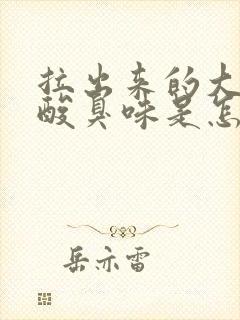 拉出来的大
酸臭味是怎
岳亦雷